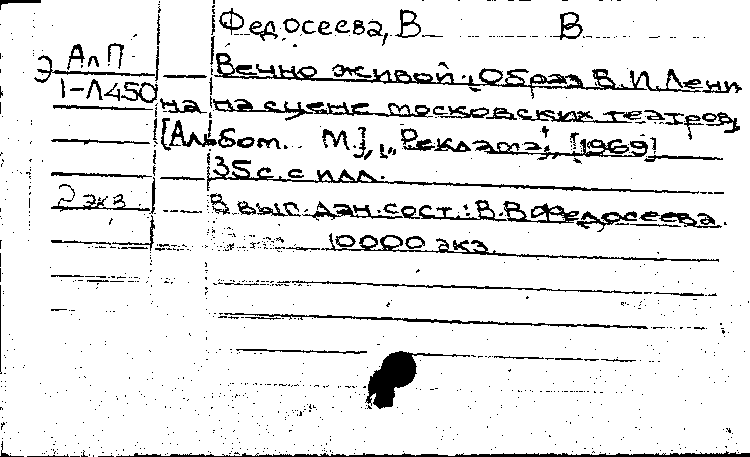 Федосеева, В В
Э АлП
1-Л450
Вечно живой. Образ В.И.Лени
на на сцене московских театров.
[Альбом. М.], „Реклама", [1969]
35с. с илл.
2 экз.
В вып. дан. сост.: В.В.Федосеева.
10000 экз.